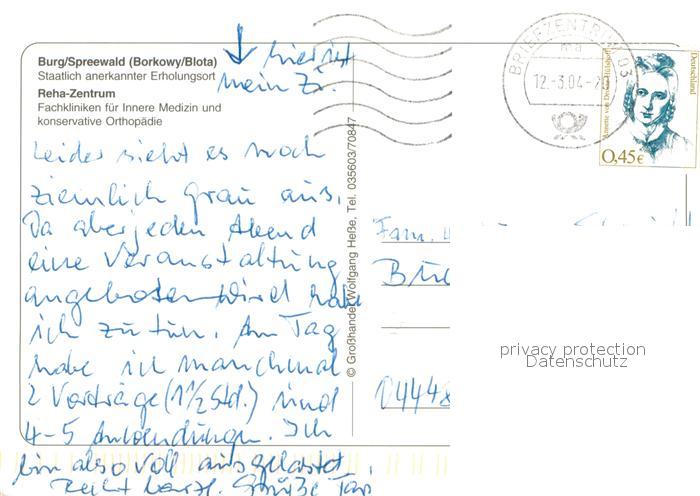 Burg/Spreewald (Borkowy/Błota)
Staatlich anerkannter Erholungsort
Reha-Zentrum
Fachkliniken für Innere Medizin und
konservative Orthopädie
hier ist
mein Zi.
Leider sieht es noch
ziemlich grau aus.
Da aber jeden Abend
eine Veranstaltung
angeboten wird habe
ich zu tun. Am Tag
habe ich manchmal
2 Vorträge (1 1/2 Std.) und
4-5 Anwendungen. Ich
bin also voll ausgelastet.
Recht herzl. Grüße
© Großhandel Wolfgang Heße, Tel. 035603/70847
BRIEFZENTRUM 03
12.-3.04-20
Annette von Droste-Hülshoff
Deutschland
0,45€
Fam.
04448
privacy protection
Datenschutz